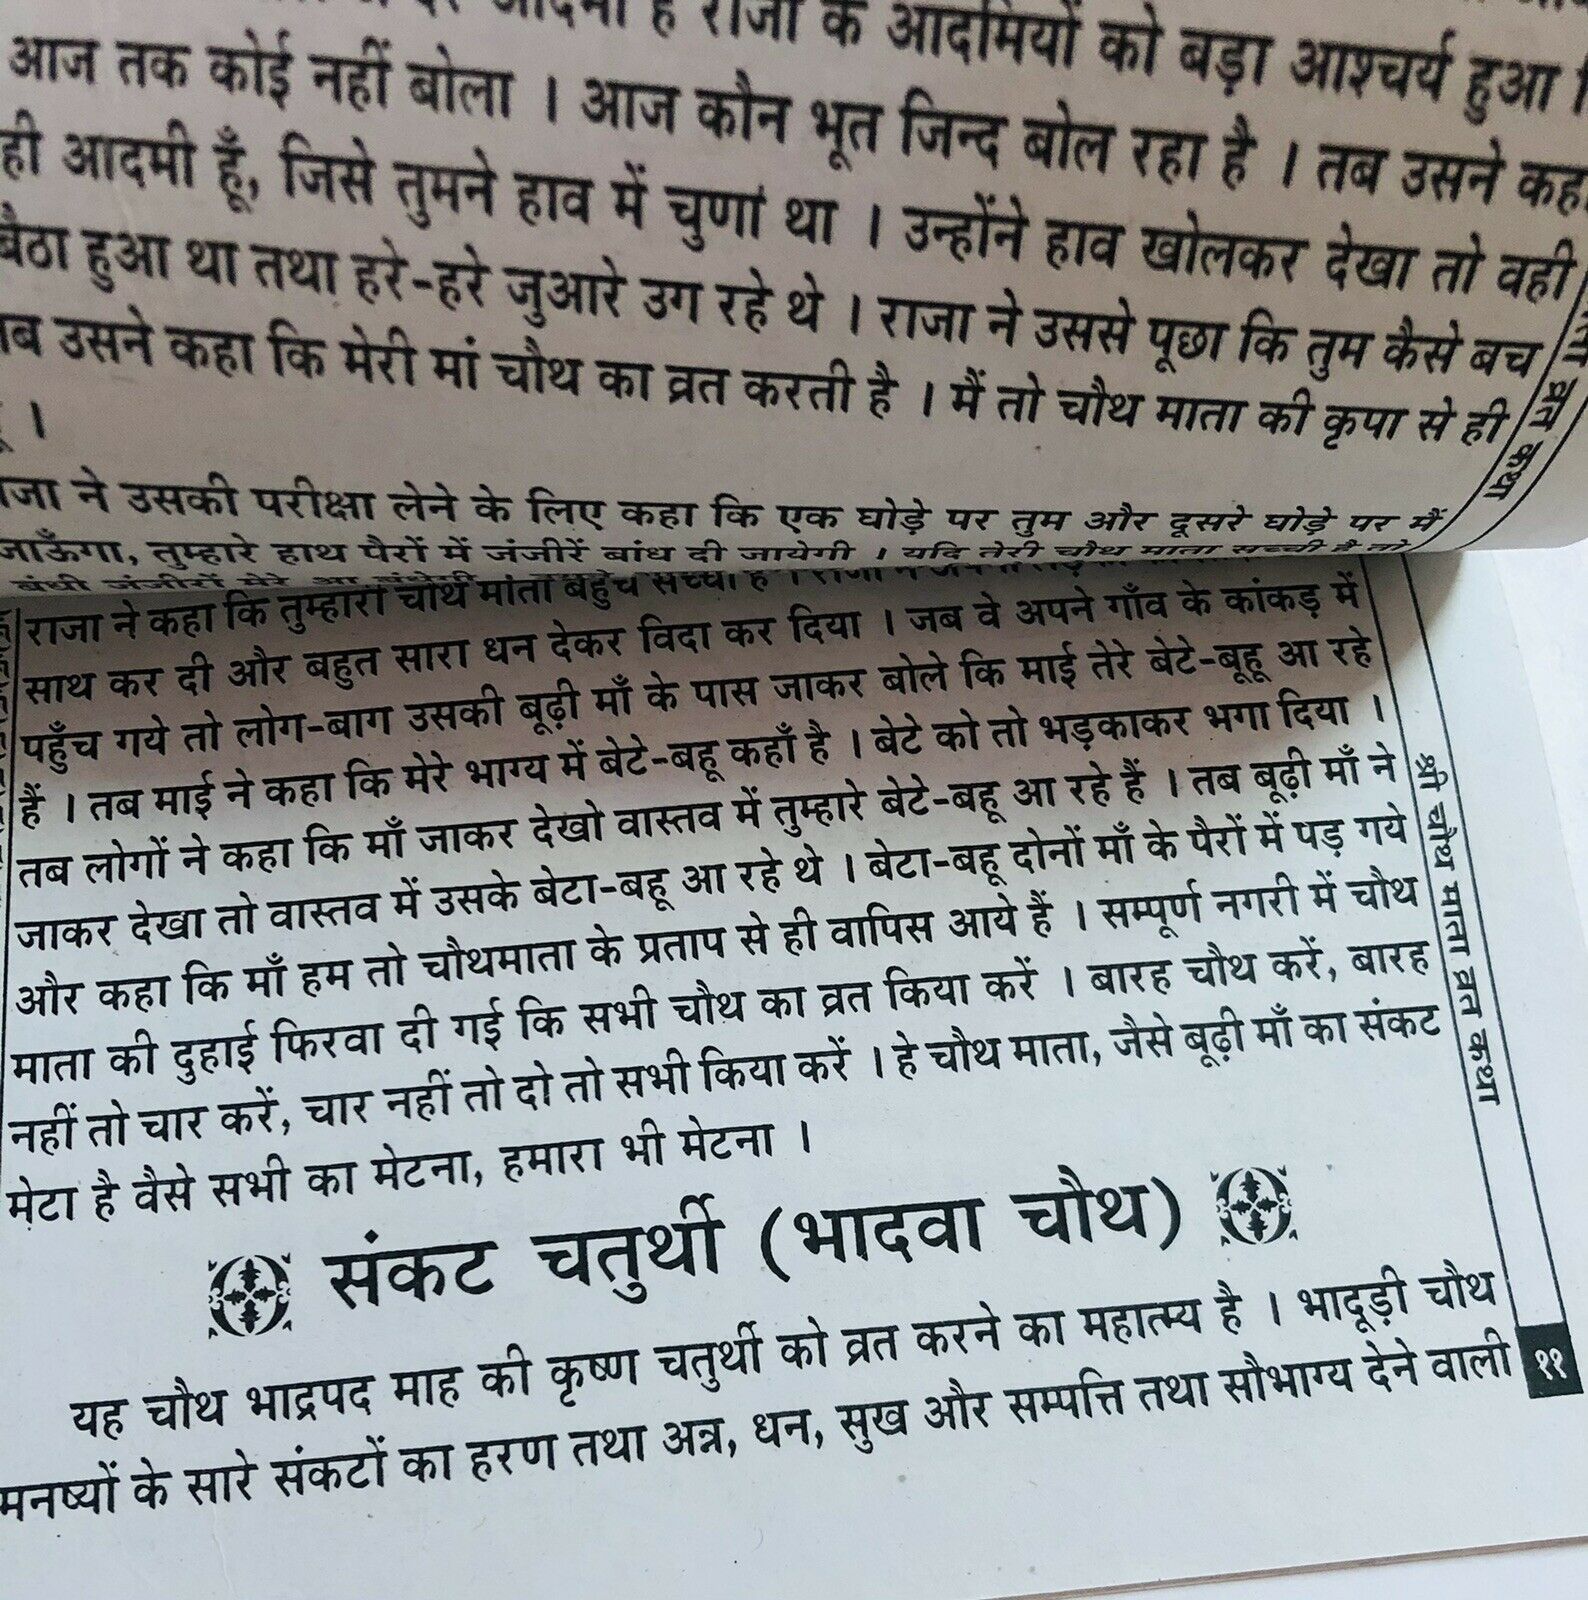 आदमी है राजा के आदमियों को बड़ा आश्चर्य हुआ
आज तक कोई नहीं बोला । आज कौन भूत जिन्द बोल रहा है । तब उसने कहा
ही आदमी हूँ, जिसे तुमने हाव में चुणां था । उन्होंने हाव खोलकर देखा तो वही
बैठा हुआ था तथा हरे-हरे जुआरे उग रहे थे । राजा ने उससे पूछा कि तुम कैसे बच
उसने कहा कि मेरी मां चौथ का व्रत करती है । मैं तो चौथ माता की कृपा से ही
।
ने उसकी परीक्षा लेने के लिए कहा कि एक घोड़े पर तुम और दूसरे घोड़े पर मैं
जाऊँगा, तुम्हारे हाथ पैरों में जंजीरें बांध दी जायेगी । यदि तेरी चौथ माता सच्ची है तो
व्रत कथा
राजा ने कहा कि तुम्हारी चौथ माता बहुत सच्ची है ।
साथ कर दी और बहुत सारा धन देकर विदा कर दिया । जब वे अपने गाँव के कांकड़ में
पहुँच गये तो लोग-बाग उसकी बूढ़ी माँ के पास जाकर बोले कि माई तेरे बेटे-बूहू आ रहे
हैं । तब माई ने कहा कि मेरे भाग्य में बेटे-बहू कहाँ है । बेटे को तो भड़काकर भगा दिया ।
तब लोगों ने कहा कि माँ जाकर देखो वास्तव में तुम्हारे बेटे-बहू आ रहे हैं । तब बूढ़ी माँ ने
जाकर देखा तो वास्तव में उसके बेटा-बहू आ रहे थे । बेटा-बहू दोनों माँ के पैरों में पड़ गये
और कहा कि माँ हम तो चौथमाता के प्रताप से ही वापिस आये हैं । सम्पूर्ण नगरी में चौथ
माता की दुहाई फिरवा दी गई कि सभी चौथ का व्रत किया करें । बारह चौथ करें, बारह
नहीं तो चार करें, चार नहीं तो दो तो सभी किया करें । हे चौथ माता, जैसे बूढ़ी माँ का संकट
मेटा है वैसे सभी का मेटना, हमारा भी मेटना ।
श्री चौथ माता व्रत कथा
संकट चतुर्थी (भादवा चौथ)
यह चौथ भाद्रपद माह की कृष्ण चतुर्थी को व्रत करने का महात्म्य है । भादूड़ी चौथ
मनष्यों के सारे संकटों का हरण तथा अन्न, धन, सुख और सम्पत्ति तथा सौभाग्य देने वाली
११